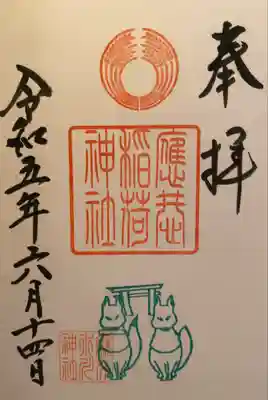 奉拝
稲荷
神社
神社
令和五年六月十四日